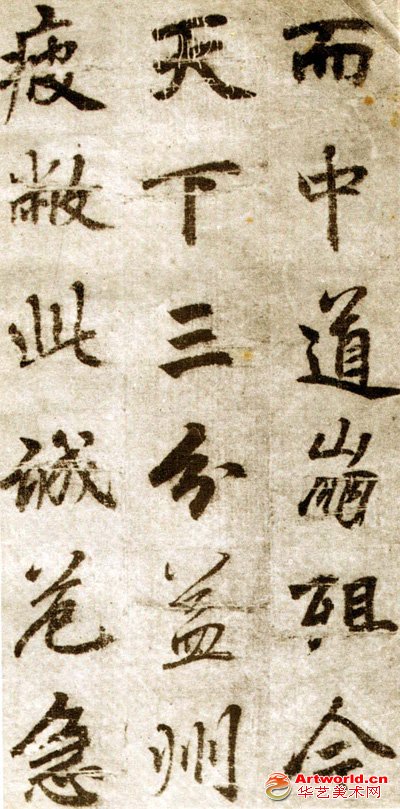 而中道崩殂今
天下三分益州
疲敝此誠危急
Artworld.cn
华艺美术网